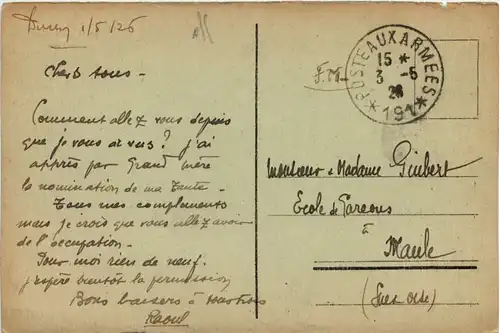 1/5/26
Chers tous -
Comment allez vous depuis
que je vous ai vus? j'ai
appris par Grand mère
la nomination de ma Tante -
Tous mes compliments
mais je crois que vous allez avoir
de l'occupation -
Pour moi rien de neuf.
j'espère bientôt la permission
Bons baisers à tous
Raoul
F.M.
*POSTE AUX ARMEES*
15 *
3 -5
26
191
Monsieur & Madame Guibert
Ecole de Garçons
à
Maule
(Sne Oise)